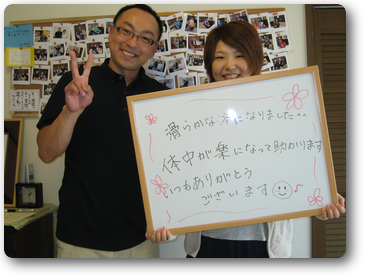 滑らかな体になりました。。
体中が楽になって助かります
いつもありがとう
ございます